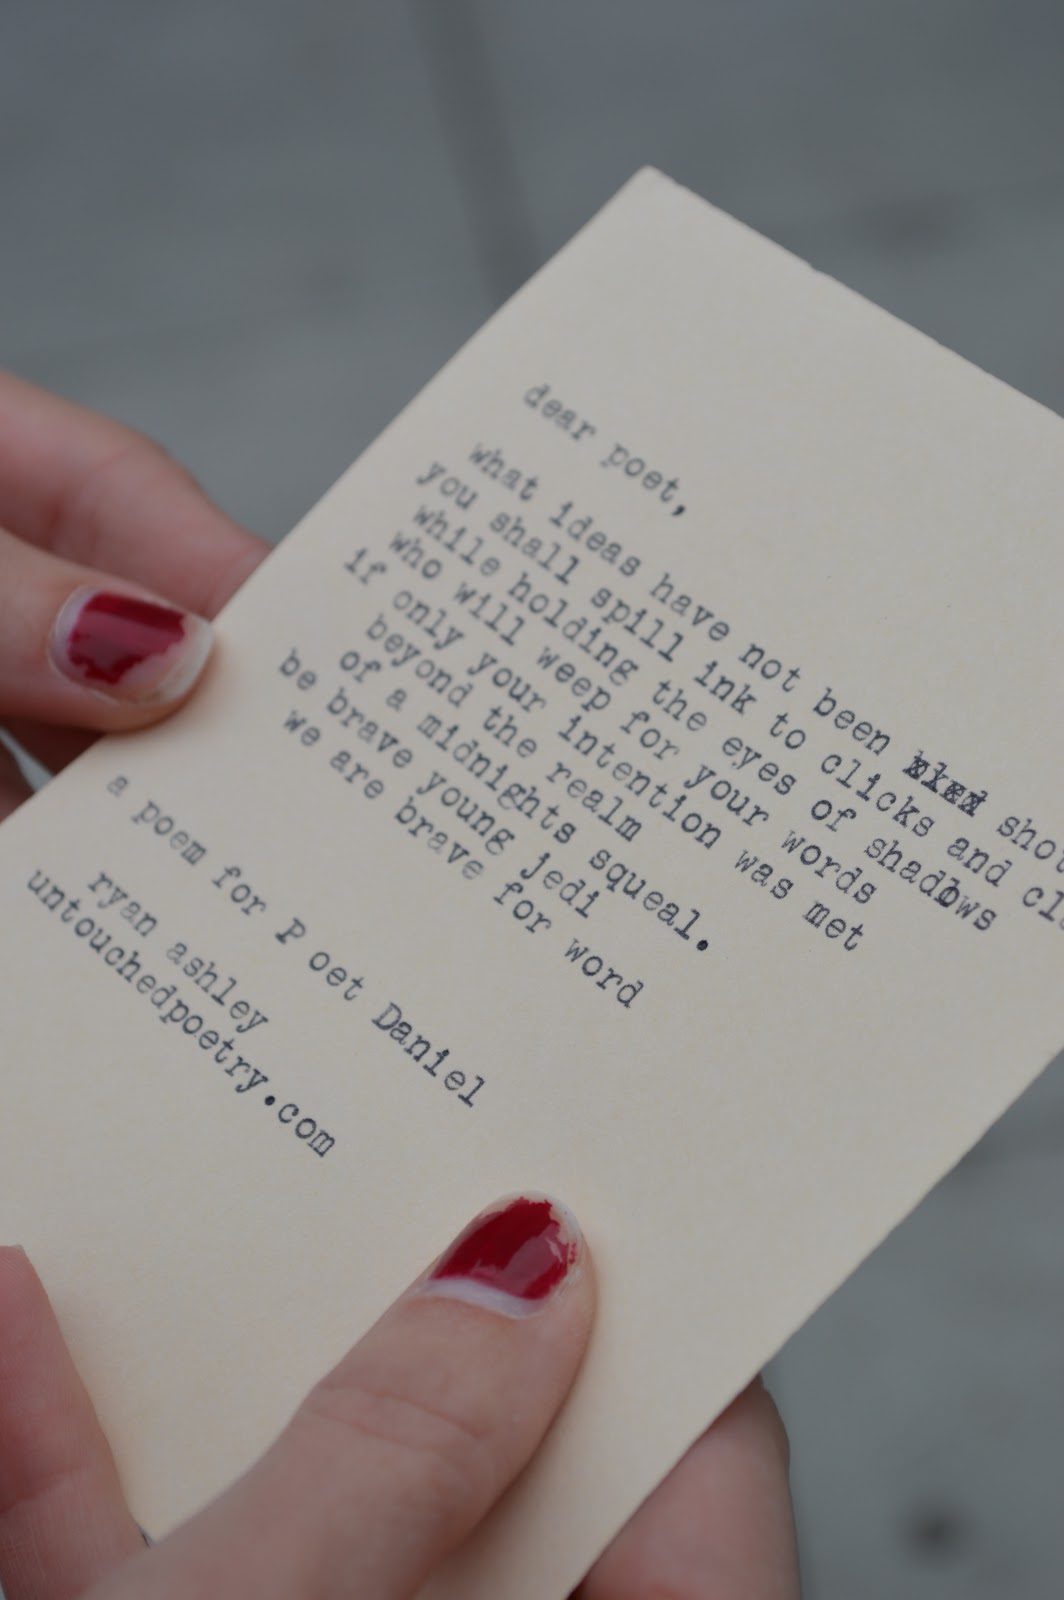 dear poet,
what ideas have not been
you shall spill ink to clicks and
while holding the eyes of shadows
who will weep for your words
if only your intention was met
beyond the realm
of a midnights squeal.
be brave young jedi
we are brave for word
a poem for P oet Daniel
ryan ashley
untouchedpoetry.com